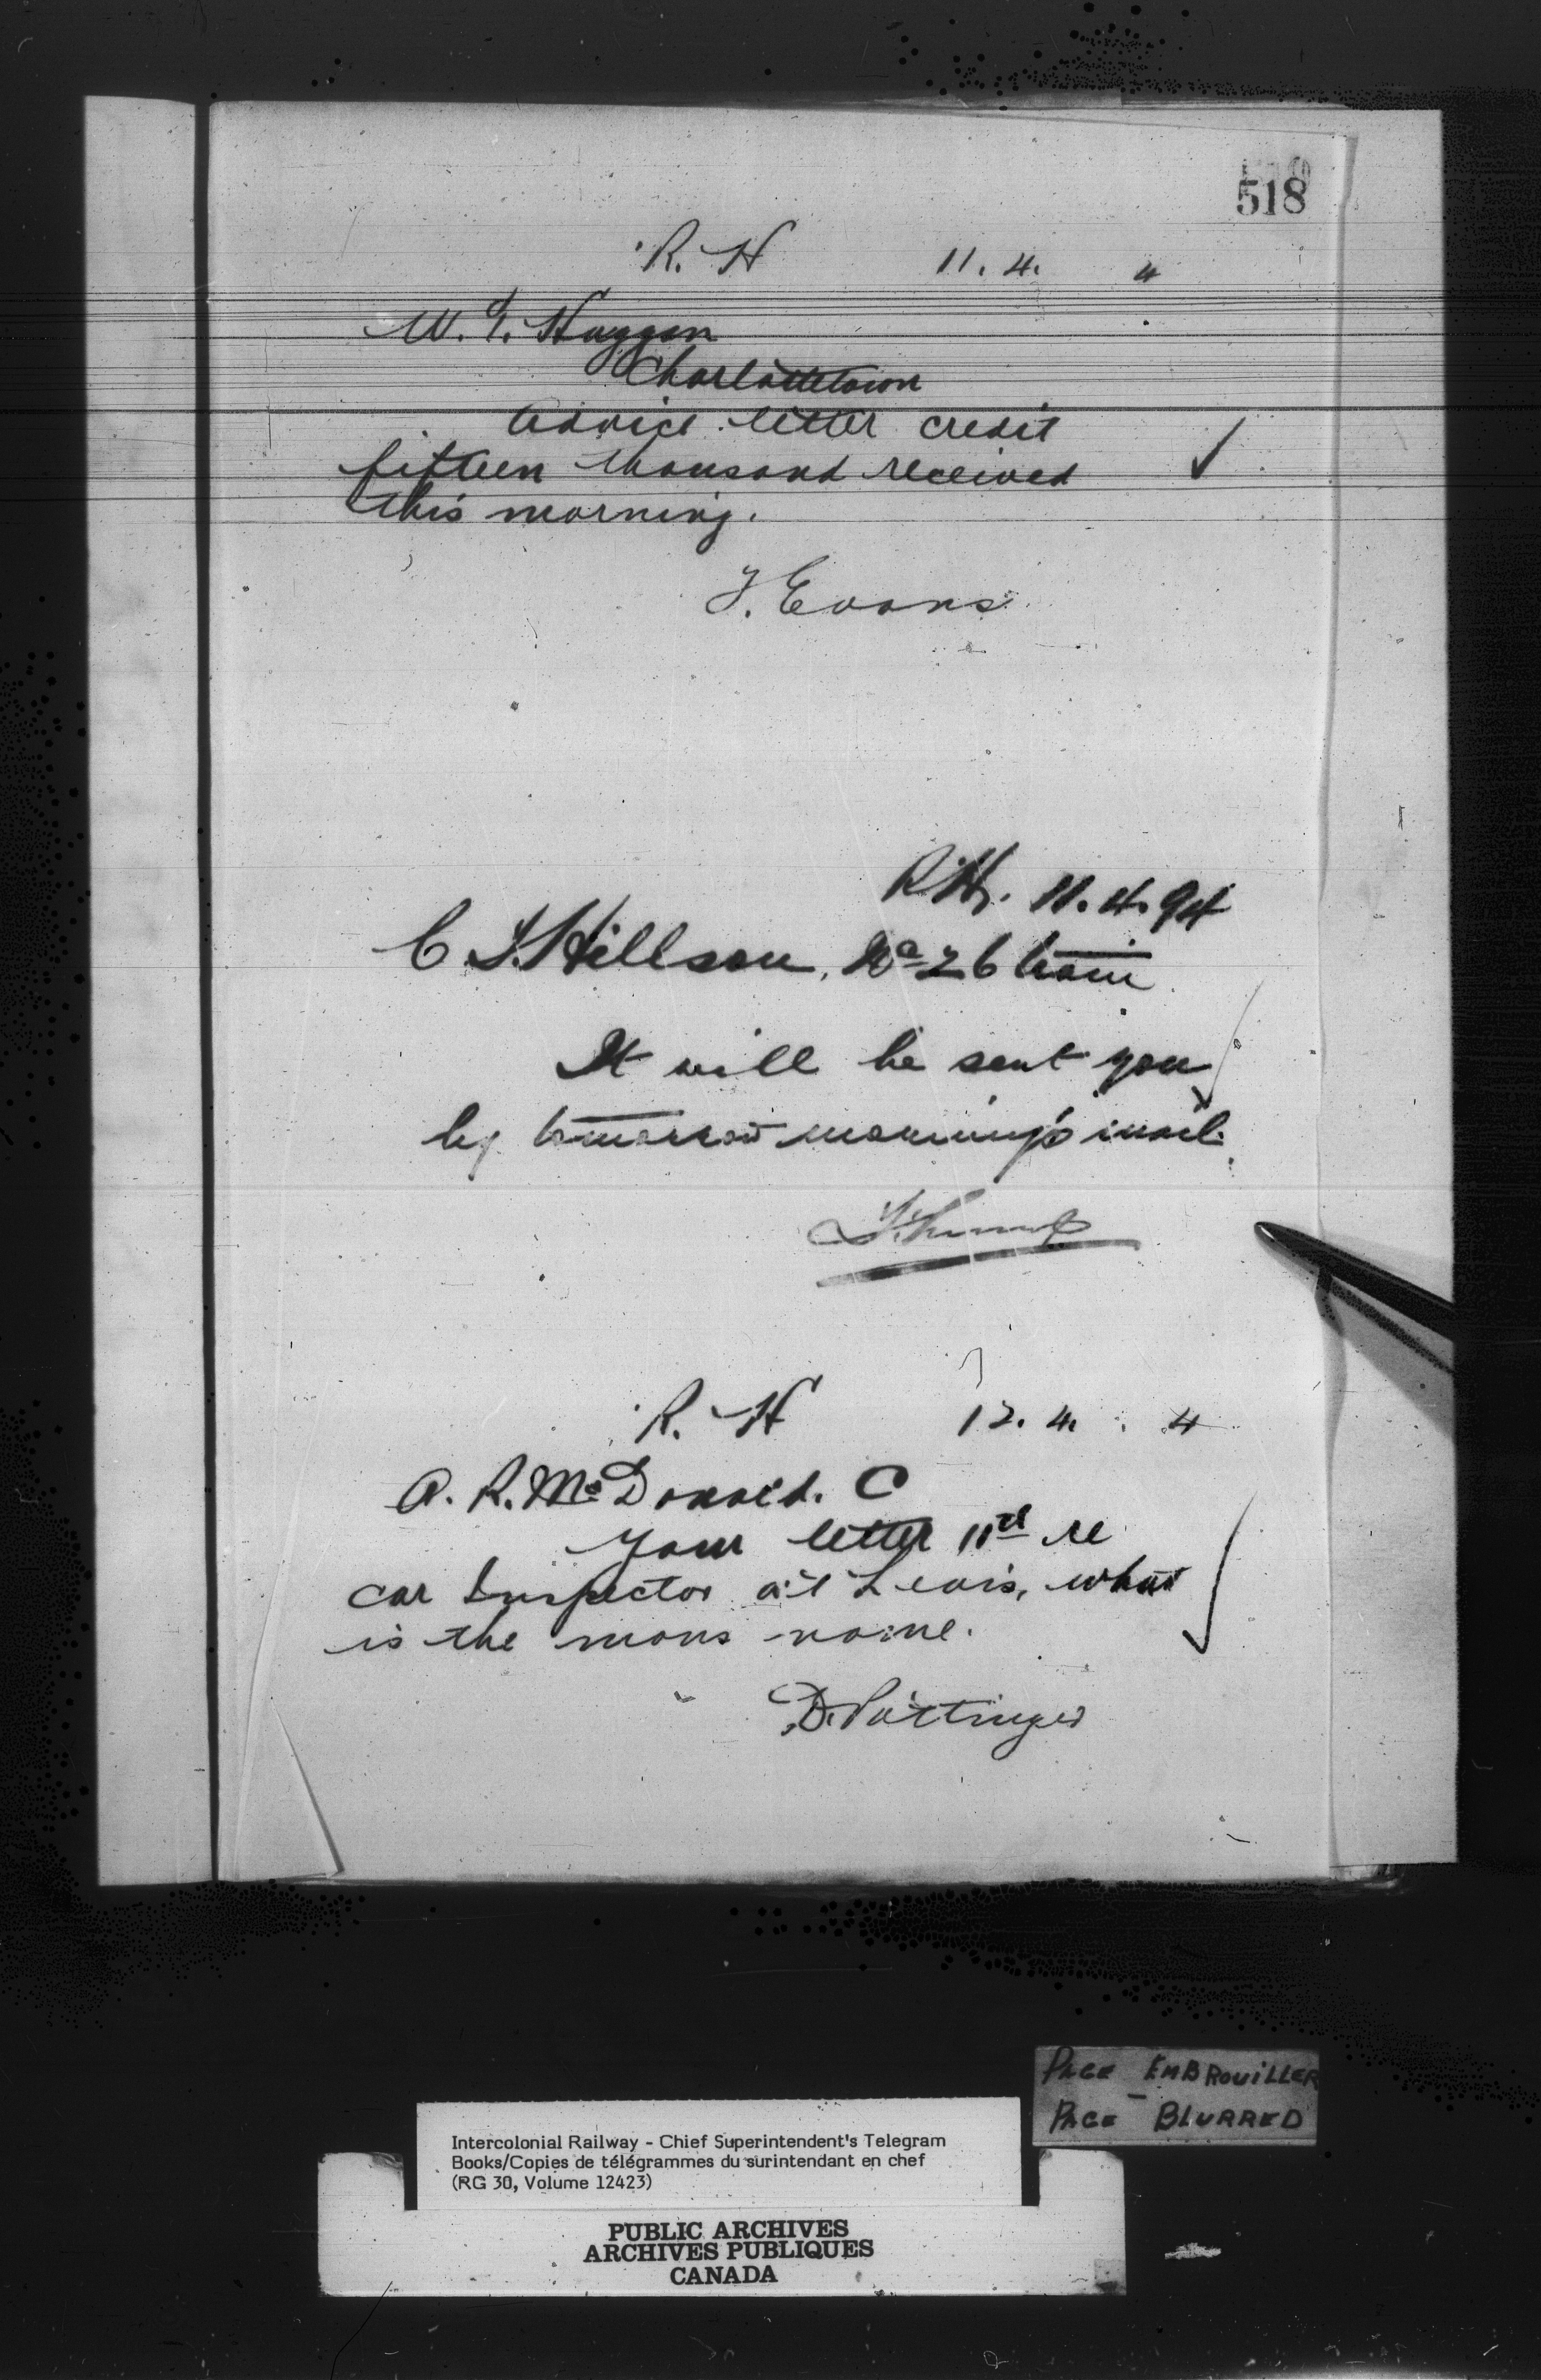 518
R. H 11. 4. 4
W. T. Huggan
Charlottetown
Advice letter credit
fifteen thousand received
this morning.
T. Evans
R.H. 11. 4. 94
C J. Hillson, No 26 train
It will be sent you
by tomorrow morning's mail.
R. H 12. 4. 4
A. R. McDonald. C
Your letter 11th re
car Inspector at Levis, what
is the mans name.
D. Pottinger
PAGE EMBROUILLER
PAGE BLURRED
Intercolonial Railway - Chief Superintendent's Telegram
Books/Copies de télégrammes du surintendant en chef
(RG 30, Volume 12423)
PUBLIC ARCHIVES
ARCHIVES PUBLIQUES
CANADA